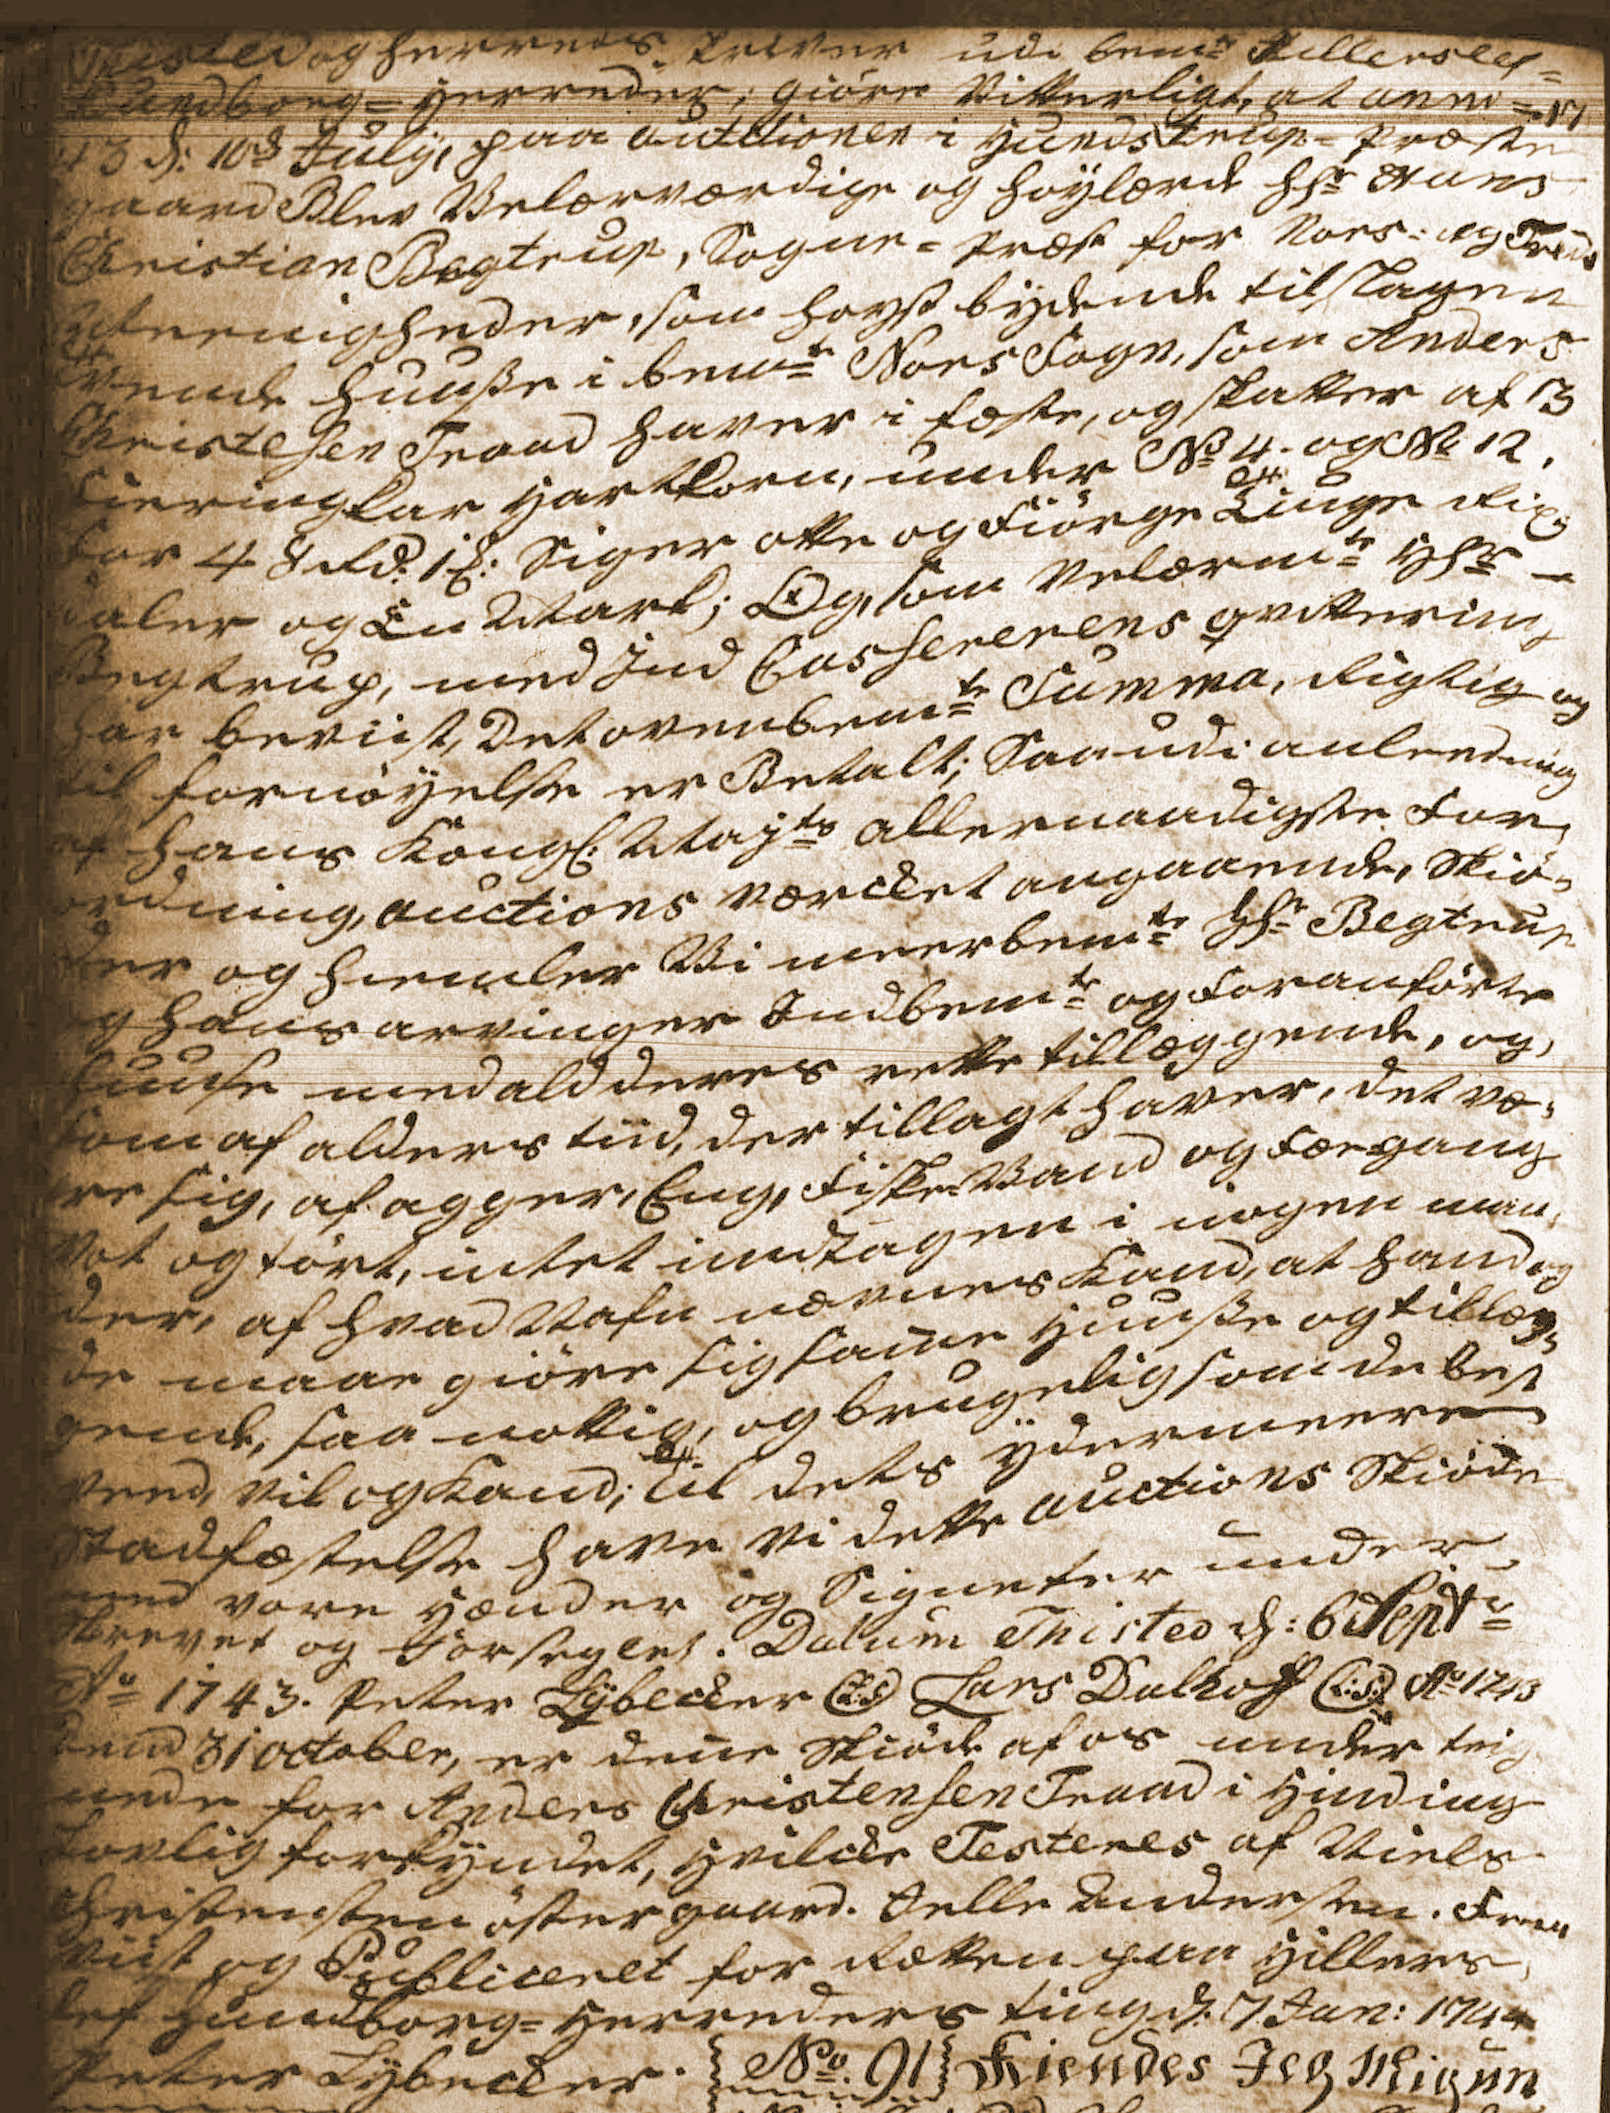 Thisted og herreds skriver udi bemte Hillerslef=
Hundborg= Herreder, giöre Vitterligt, at anno 17
43 d: 10de July, paa auctionen i Hundstrup= Præste
gaard Blev Velærværdige og høylærde Hhr Hans
Christian Begtrup, Sogne= Præst for Nors= og
Meenigheder, som høyst bydende tilslagen
huuße i bemte Nors Sogn, som Anders
Christensen Traad haver i fæste, og skatter af 3
Fieringkar Hartkorn, under No 4. og No 12,
for 48 Rd. 1 ß: Siger otte og Fiörge Tiuge Rix
daler og En Mark; Og, som Velærmte Hhr
Begtrup, med Ind Casserernes qvittering
har beviist, Det ovenbemte Summa, Rigtig og
til fornöyelse er Betalt; Saa udi anledning
af hans Kongl: Mayts allernaadigste For,
ordning, auctions værcket angaaende, Skiö,
der og hiemler Vi meerbemte Hhr Begtrup
og hans arvinger Indbemte og Foranförte
huuse med ald deres rette tillæggende, og,
som af alders tiid, der tillagt haver, det væ,
re sig, af agger, Eng, Fiske Vand og Fægang
Vot og tört, intet undtagen i nogen maa,
der, af hvad Nafn nævnes Kand, at hand og
de maae giöre sig samme Huuße og tillæg,
gende, saa nottig, og brugelig som de best
veed, vil og Kand; til dets ydermeere
Stadfæstelse have Vi dette auctions Skiöde
med vore Hænder og Signeter under,
skrevet og Forseglet. Datum Thisted d: 6 Septr
Ao 1743. Peter Lybecker (L.S) Lars Dalhoff (L:S:) Ao 1743
dend 31 october, er denne Skiöde af os under teig
nede for Anders Christensen Traad i Hinding
Lovlig forkyndet, Hvilcke Testeres af Niels
Christensen östergaard. Jelle Andersen. Frem
viist og Publiceret for Retten paa Hillers,
lef Hundborg= Herreders ting d: 7 Jan: 1744
Peter Lybecker. No. 91 Kiendes Jeg Mig un